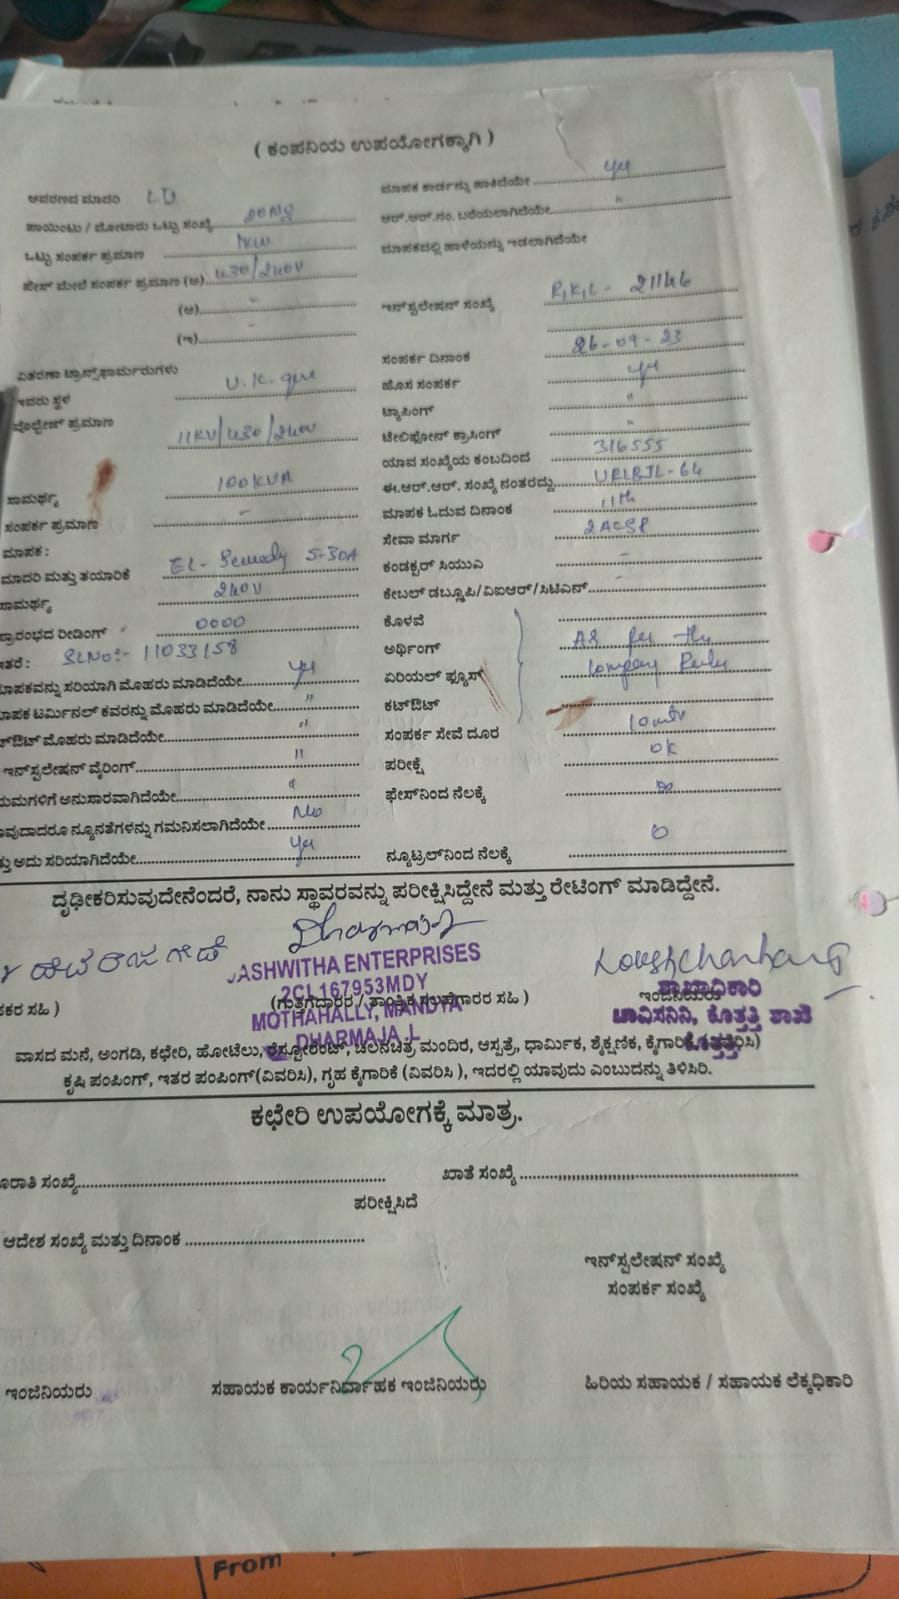 ( ಕಂಪನಿಯ ಉಪಯೋಗಕ್ಕಾಗಿ )
ಆವರಣದ ಮಾದರಿ ಮಾಪಕ ಕಾರ್ಡನ್ನು ಹಾಕಿದೆಯೇ
ಪಾಯಿಂಟು / ಮೋಟಾರು ಒಟ್ಟು ಸಂಖ್ಯೆ ಆರ್.ಆರ್.ನಂ. ಬರೆಯಲಾಗಿದೆಯೇ "
ಒಟ್ಟು ಸಂಪರ್ಕ ಪ್ರಮಾಣ ಮಾಪಕದಲ್ಲಿ ಹಾಳೆಯನ್ನು ಇಡಲಾಗಿದೆಯೇ
ಫೇಸ್ ಮೇಲೆ ಸಂಪರ್ಕ ಪ್ರಮಾಣ (ಅ) 430/240V
(ಆ) - ಇನ್‌ಸ್ಟಲೇಷನ್ ಸಂಖ್ಯೆ 21146
(ಇ) -
ವಿತರಣಾ ಟ್ರಾನ್ಸ್‌ಫಾರ್ಮರುಗಳು ಸಂಪರ್ಕ ದಿನಾಂಕ 26-09-23
ಇದರು ಸ್ಥಳ ಹೊಸ ಸಂಪರ್ಕ
ವೋಲ್ಟೇಜ್ ಪ್ರಮಾಣ 11KV/430/240V ಟ್ಯಾಪಿಂಗ್ "
ಟೆಲಿಫೋನ್ ಕ್ರಾಸಿಂಗ್ "
ಯಾವ ಸಂಖ್ಯೆಯ ಕಂಬದಿಂದ 316555
ಸಾಮರ್ಥ್ಯ 100KVA ಈ.ಆರ್.ಆರ್. ಸಂಖ್ಯೆ ನಂತರದ್ದು
ಸಂಪರ್ಕ ಪ್ರಮಾಣ - ಮಾಪಕ ಓದುವ ದಿನಾಂಕ 11th
ಮಾಪಕ : ಸೇವಾ ಮಾರ್ಗ
ಮಾದರಿ ಮತ್ತು ತಯಾರಿಕೆ 5-30A ಕಂಡಕ್ಟರ್ ಸಿಯುಎ -
ಸಾಮರ್ಥ್ಯ 240V ಕೇಬಲ್ ಡಬ್ಲೂಪಿ/ವಿಐಆರ್/ಸಿಟಿಎನ್
ಪ್ರಾರಂಭದ ರೀಡಿಂಗ್ 0000 ಕೊಳವೆ
ಇತರೆ : SLNo:- 11033158 ಅರ್ಥಿಂಗ್ As per the
ಮಾಪಕವನ್ನು ಸರಿಯಾಗಿ ಮೊಹರು ಮಾಡಿದೆಯೇ yes ಏರಿಯಲ್ ಫ್ಯೂಸ್ Company Rules
ಮಾಪಕ ಟರ್ಮಿನಲ್ ಕವರನ್ನು ಮೊಹರು ಮಾಡಿದೆಯೇ " ಕಟ್‌ಔಟ್
ಕಟ್‌ಔಟ್ ಮೊಹರು ಮಾಡಿದೆಯೇ " ಸಂಪರ್ಕ ಸೇವೆ ದೂರ
ಇನ್‌ಸ್ಟಲೇಷನ್ ವೈರಿಂಗ್ " ಪರೀಕ್ಷೆ OK
ನಿಯಮಗಳಿಗೆ ಅನುಸಾರವಾಗಿದೆಯೇ " ಫೇಸ್‌ನಿಂದ ನೆಲಕ್ಕೆ
ಯಾವುದಾದರೂ ನ್ಯೂನತೆಗಳನ್ನು ಗಮನಿಸಲಾಗಿದೆಯೇ No
ಮತ್ತು ಅದು ಸರಿಯಾಗಿದೆಯೇ yes ನ್ಯೂಟ್ರಲ್‌ನಿಂದ ನೆಲಕ್ಕೆ 0
ದೃಢೀಕರಿಸುವುದೇನೆಂದರೆ, ನಾನು ಸ್ಥಾವರವನ್ನು ಪರೀಕ್ಷಿಸಿದ್ದೇನೆ ಮತ್ತು ರೇಟಿಂಗ್ ಮಾಡಿದ್ದೇನೆ.
JASHWITHA ENTERPRISES
2CL167953MDY
(ಗುತ್ತಿಗೆದಾರರ / ತಾಂತ್ರಿಕ ಸಲಹೆಗಾರರ ಸಹಿ ) ಇಂಜಿನಿಯರು
MOTHAHALLY, MANDYA
DHARMAJA .L
ಶಾಖಾಧಿಕಾರಿ
ಚಾವಿಸನಿನಿ, ಕೊತ್ತತ್ತಿ ಶಾಖೆ
ಕೊತ್ತತ್ತಿ
ವಾಸದ ಮನೆ, ಅಂಗಡಿ, ಕಛೇರಿ, ಹೋಟೆಲು, ರೆಸ್ಟೋರೆಂಟ್, ಚಲನಚಿತ್ರ ಮಂದಿರ, ಆಸ್ಪತ್ರೆ, ಧಾರ್ಮಿಕ, ಶೈಕ್ಷಣಿಕ,
ಕೃಷಿ ಪಂಪಿಂಗ್, ಇತರ ಪಂಪಿಂಗ್(ವಿವರಿಸಿ), ಗೃಹ ಕೈಗಾರಿಕೆ (ವಿವರಿಸಿ ), ಇದರಲ್ಲಿ ಯಾವುದು ಎಂಬುದನ್ನು ತಿಳಿಸಿರಿ.
ಕಛೇರಿ ಉಪಯೋಗಕ್ಕೆ ಮಾತ್ರ.
ಸಂಖ್ಯೆ ಖಾತೆ ಸಂಖ್ಯೆ
ಪರೀಕ್ಷಿಸಿದೆ
ಆದೇಶ ಸಂಖ್ಯೆ ಮತ್ತು ದಿನಾಂಕ
ಇನ್‌ಸ್ಟಲೇಷನ್ ಸಂಖ್ಯೆ
ಸಂಪರ್ಕ ಸಂಖ್ಯೆ
ಇಂಜಿನಿಯರು ಸಹಾಯಕ ಕಾರ್ಯನಿರ್ವಾಹಕ ಇಂಜಿನಿಯರು ಹಿರಿಯ ಸಹಾಯಕ / ಸಹಾಯಕ ಲೆಕ್ಕಧಿಕಾರಿ
From